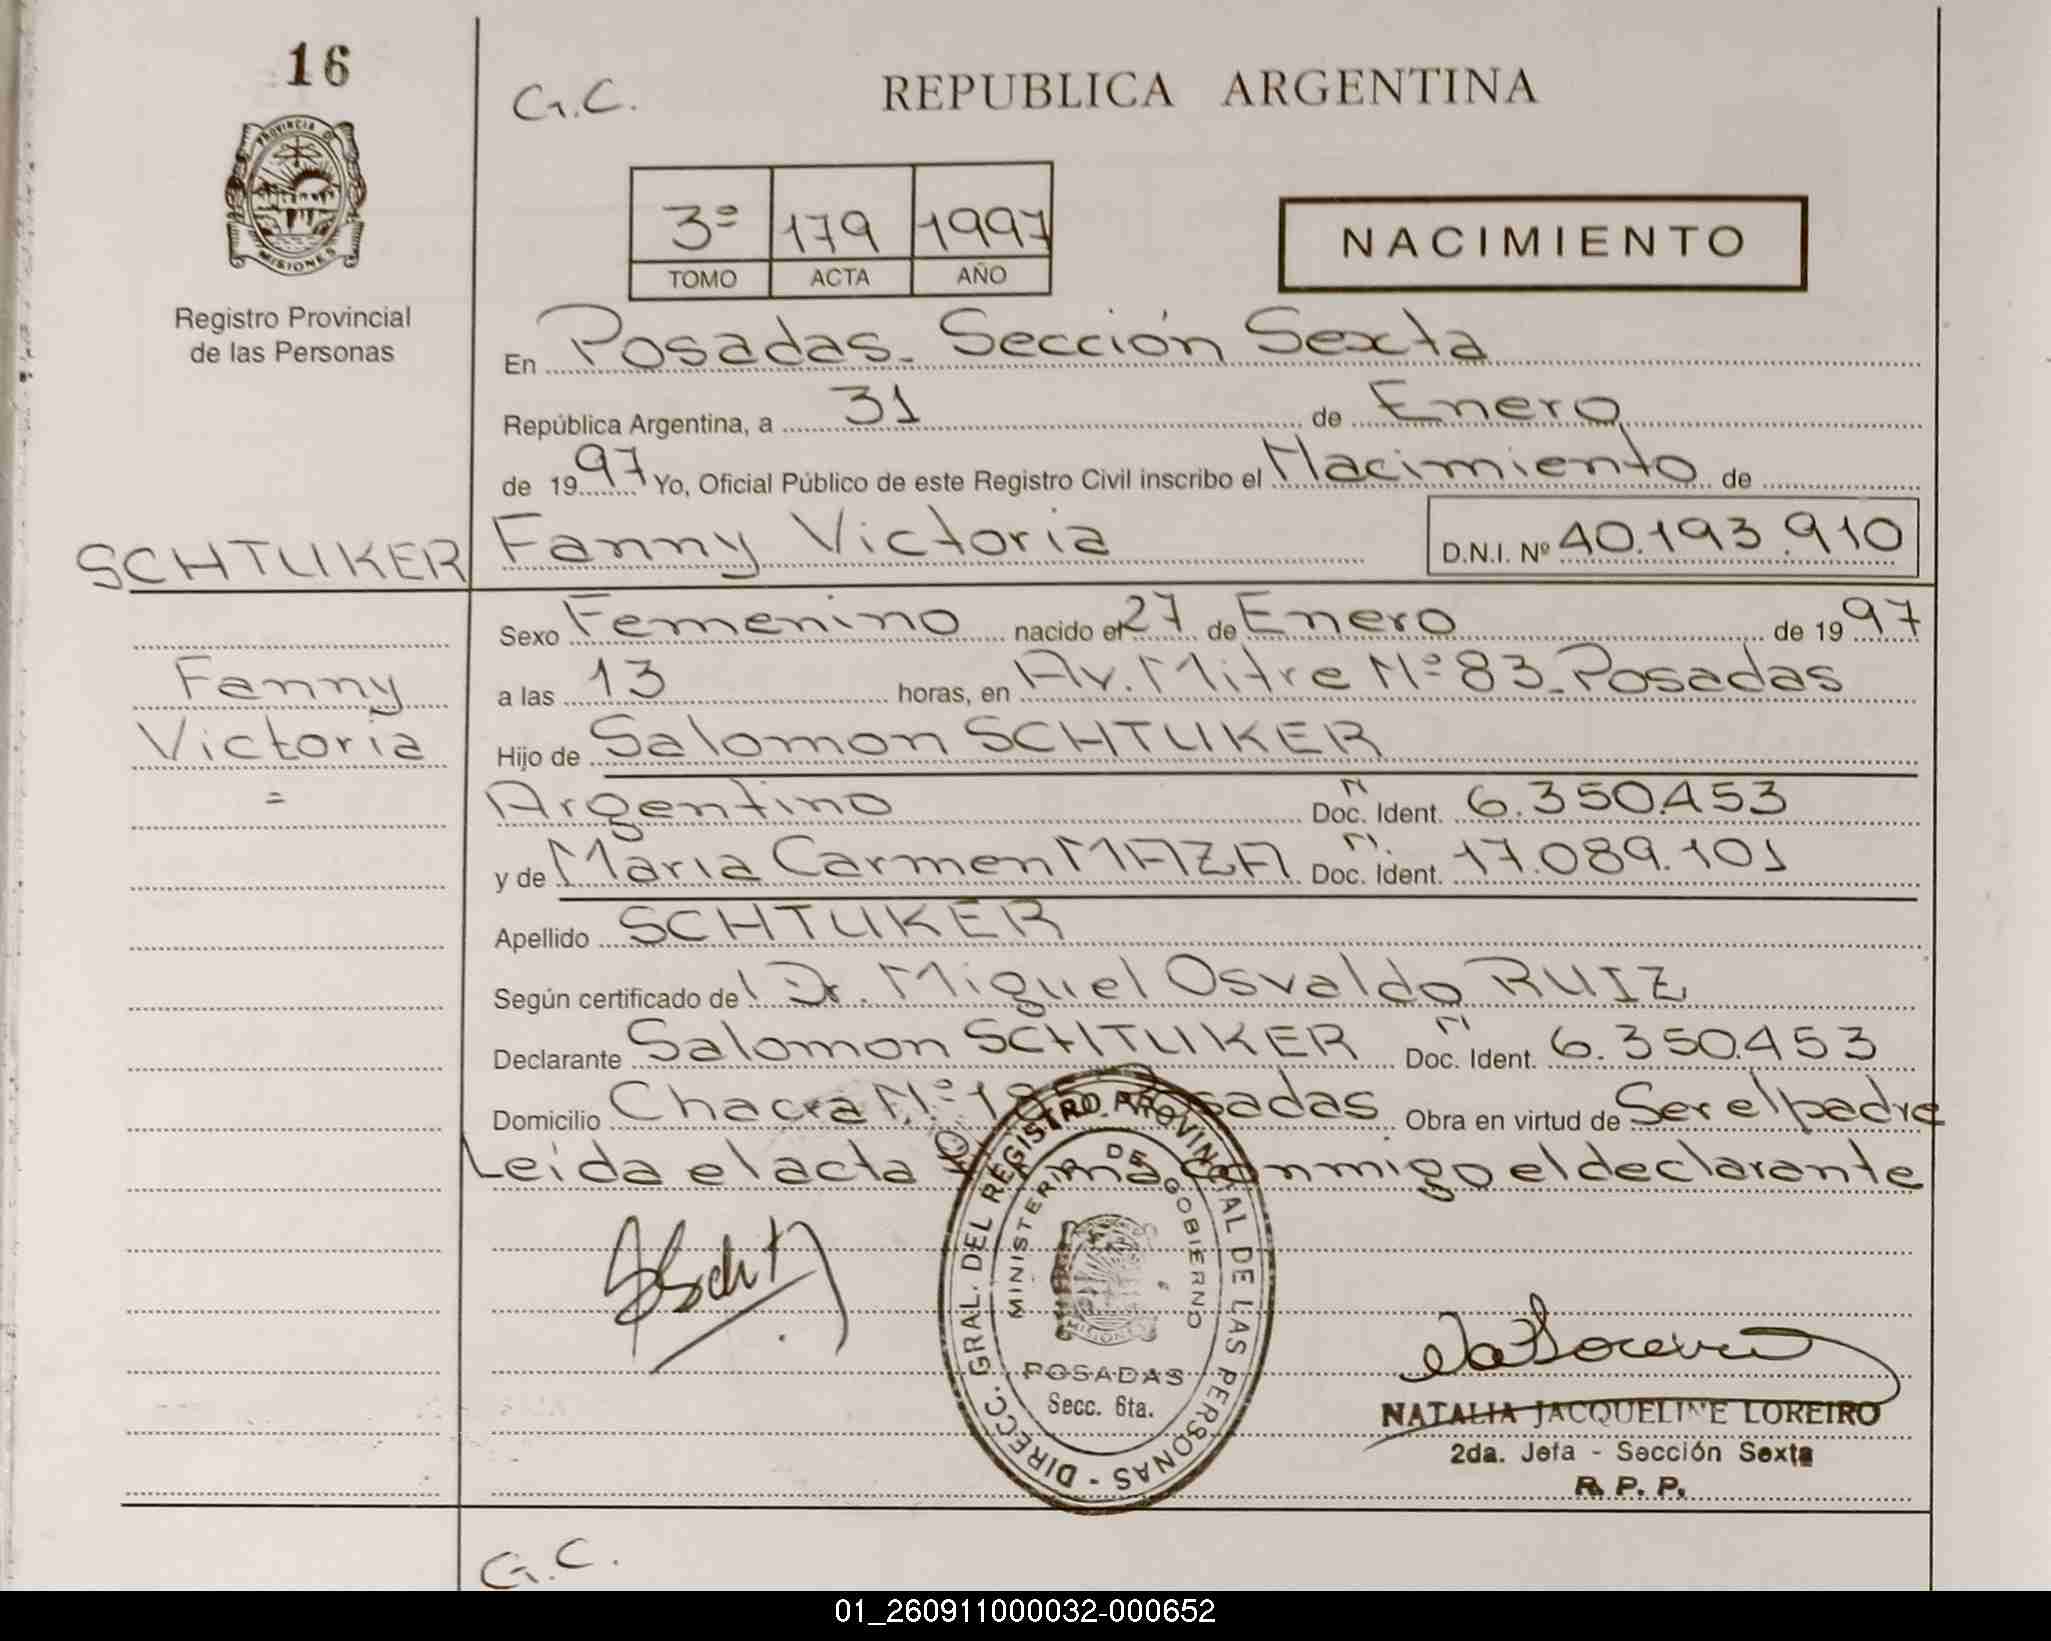 16
G.C.
REPUBLICA ARGENTINA
PROVINCIA D
MISIONES
Registro Provincial
de las Personas
3º 179 1997
TOMO ACTA AÑO
NACIMIENTO
En Posadas - Sección Sexta
República Argentina, a 31 de Enero
de 1997 Yo, Oficial Público de este Registro Civil inscribo el Nacimiento de
SCHTUKER Fanny Victoria D.N.I. Nº 40.193.910
Sexo Femenino nacido el 27 de Enero de 1997
Fanny
a las 13 horas, en Av. Mitre Nº 83 - Posadas
Victoria
Hijo de Salomon SCHTUKER
=
Argentino Doc. Ident. 6.350.453
y de Maria Carmen MAZA Doc. Ident. 17.089.101
Apellido SCHTUKER
Según certificado del Dr. Miguel Osvaldo RUIZ
Declarante Salomon SCHTUKER Doc. Ident. 6.350.453
Domicilio Chacra Nº Posadas Obra en virtud de Ser el padre
Leida el acta firma conmigo el declarante
DIRECC. GRAL. DEL REGISTRO PROVINCIAL DE LAS PERSONAS -
MINISTERIO DE GOBIERNO
MISIONES
POSADAS
Secc. 6ta.
NATALIA JACQUELINE LOREIRO
2da. Jefa - Sección Sexta
R. P. P.
G.C.
01_260911000032-000652